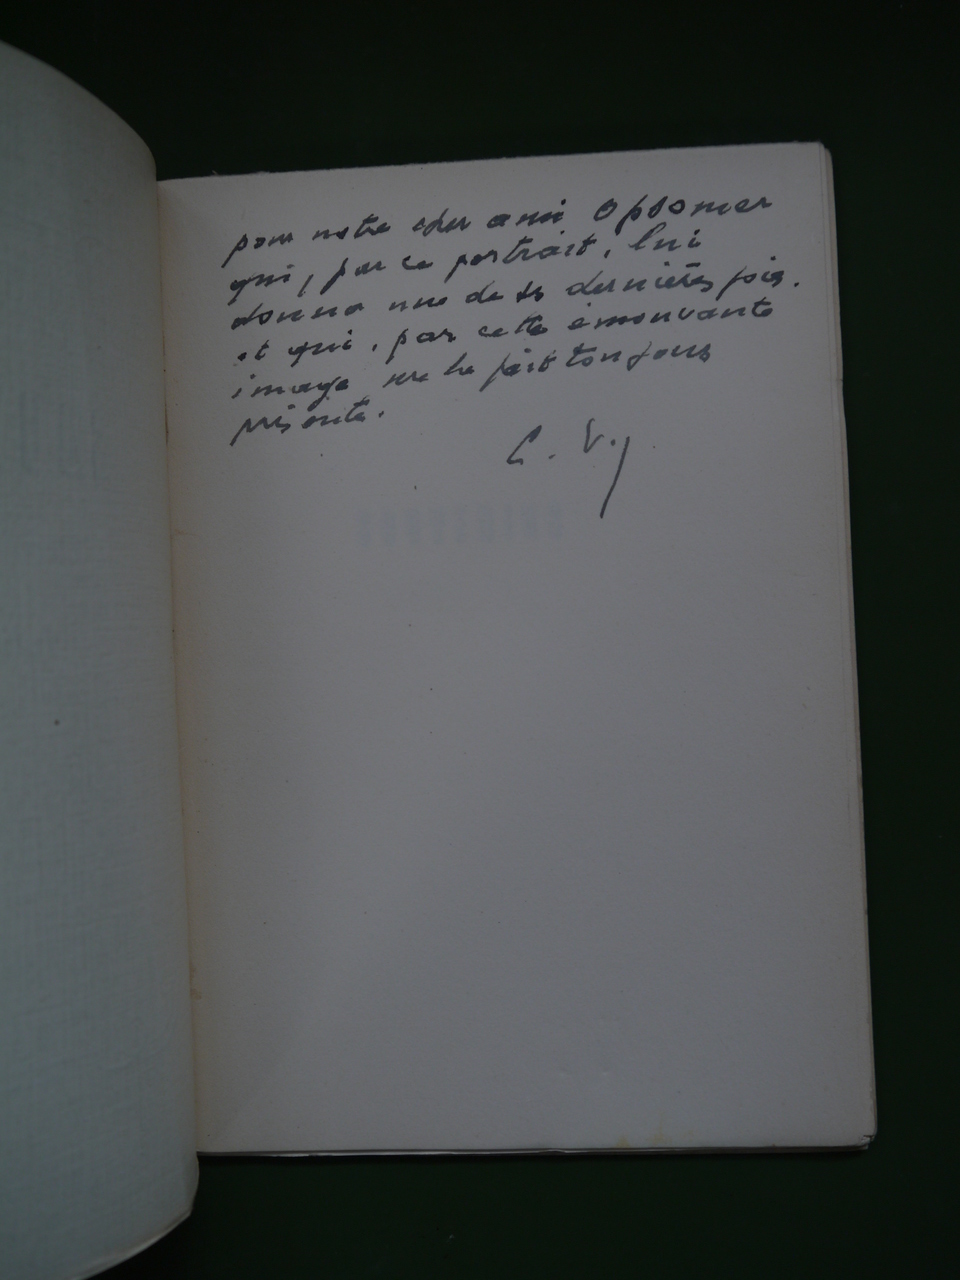 pour notre cher ami Opsomer
qui, par ce portrait, lui
donna une de ses dernières joies.
et qui, par cette émouvante
image me le fait toujours
présente.
C. V.